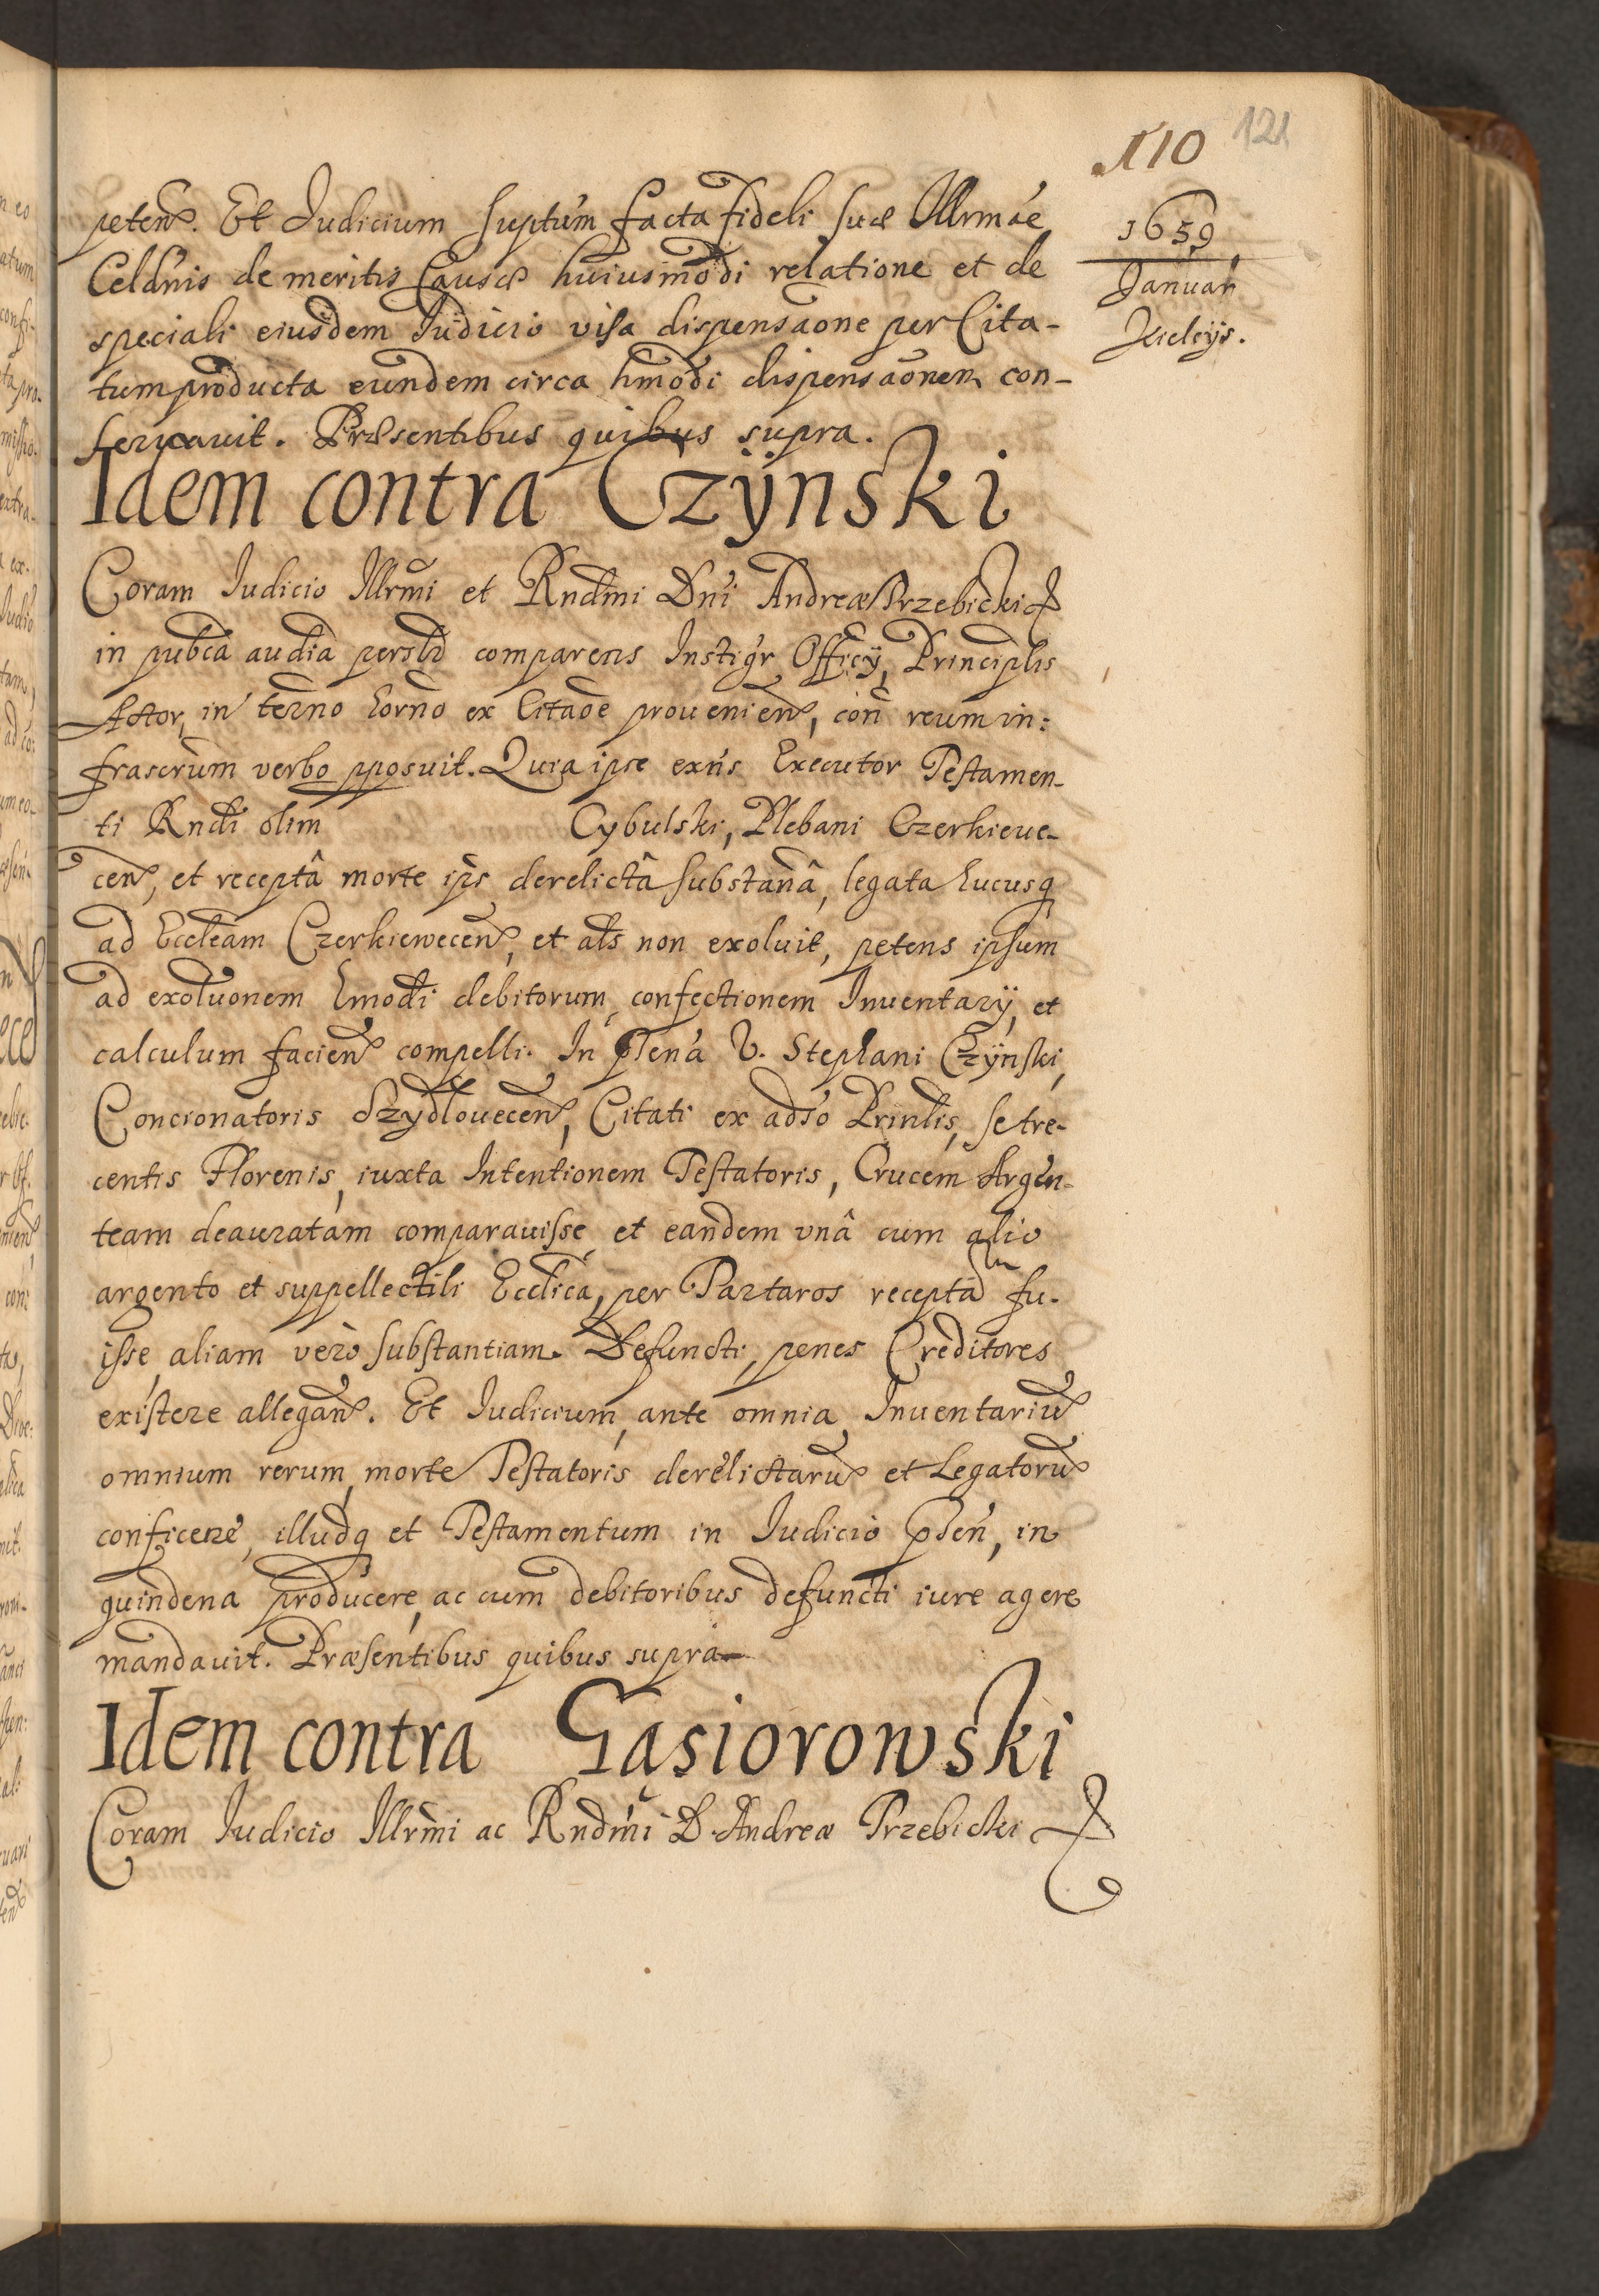 110 121
1659
Januar
Kielcijs.
peten. Et Judicium suptum facta fideli suæ Illrmae
Celdnis de meritis Causæ huiusmodi relatione et de
speciali eiusdem Judicio visa dispensaone per Cita-
tum producta eundem circa hmodi dispensaonem con-
seruauit. Præsentibus quibus supra.
Idem contra Czÿnski
Coram Judicio Illrmi et Rndmi Dni Andreæ Trzebicki
in pubca audia persl comparens Instigr Officÿ, Principlis
Actor, in terno horno ex Citaoe prouenien, con reum in:
frascrum verbo pposuit. Quia ipse exns Executor Testamen-
ti Rndi olim Cybulski, Plebani Czerkieue-
cen, et receptâ morte ips derelictâ substanâ, legata hucusq
ad Eccleam Czerkiewecen, et als non exoluit, petens ipsum
ad exoluonem hmodi debitorum, confectionem Inuentarÿ, et
calculum facien compelli. In pñtena V. Stephani Czÿnski,
Concionatoris Szydlouecen, Citati ex adso Prinlis, se tre-
centis Florenis, iuxta Intentionem Testatoris, Crucem Argen-
team deauratam comparauisse, et eandem vnâ cum alio
argento et suppellectili Ecclica, per Partaros recepta fu-
isse, aliam verò substantiam Defuncti, penes Creditores
existere allegan. Et Judicium, ante omnia Inuentariu
omnium rerum, morte Testatoris derelictaru et Legatoru
conficere, illudq et Testamentum in Judicio psen, in
quindena producere, ac cum debitoribus defuncti iure agere
mandauit. Præsentibus quibus supra
Idem contra Gasiorowski
Coram Judicio Illrmi ac Rndmi D. Andreæ Trzebicki